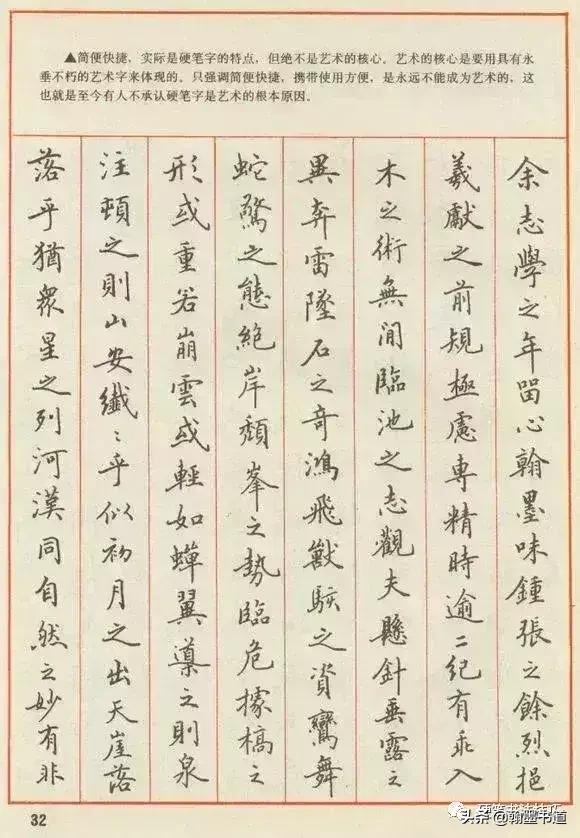 ▲简便快捷，实际是硬笔字的特点，但绝不是艺术的核心。艺术的核心是要用具有永
垂不朽的艺术字来体现的。只强调简便快捷，携带使用方便，是永远不能成为艺术的，这
也就是至今有人不承认硬笔字是艺术的根本原因。
余志學之年留心翰墨味鍾張之餘烈挹
羲獻之前規極慮專精時逾二紀有乖入
木之術無間臨池之志觀夫懸針垂露之
異奔雷墜石之奇鴻飛獸駭之資鸞舞
蛇驚之態絶岸頹峯之勢臨危據槁之
形或重若崩雲或輕如蟬翼導之則泉
注頓之則山安纖〻乎似初月之出天崖落
落乎猶衆星之列河漢同自然之妙有非
32
头条@翰墨书道